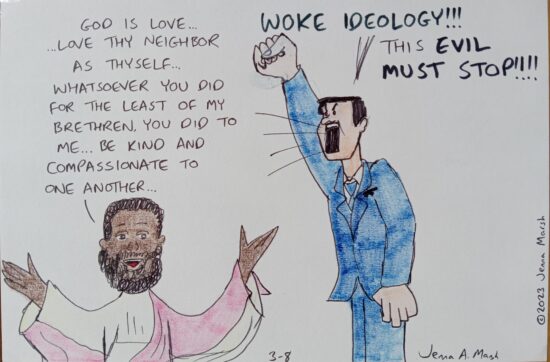 GOD IS LOVE...
...LOVE THY NEIGHBOR
AS THYSELF...
WHATSOEVER YOU DID
FOR THE LEAST OF MY
BRETHREN, YOU DID TO
ME... BE KIND AND
COMPASSIONATE TO
ONE ANOTHER...
WOKE IDEOLOGY!!!
THIS EVIL
MUST STOP!!!!
©2023 Jenna Marsh
3-8
Jenna A. Marsh